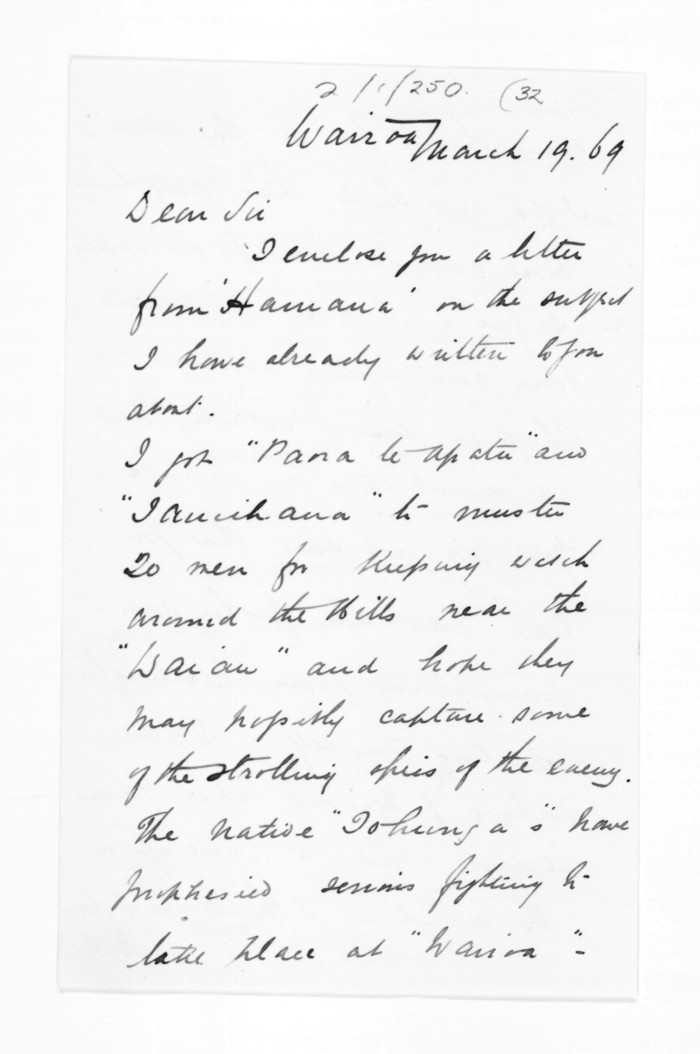 2/1/250. (32
Wairoa March 19. 69
Dear Sir
I enclose you a letter
from 'Hamana' on the subject
I have already written to you
about.
I got "Paora te Apatu" and
"Tamihana" to muster
20 men for keeping watch
around the Hills near the
"Waiau" and hope they
may possibly capture some
of the strolling spies of the enemy.
The native "Tohunga"s have
prophesied serious fighting to
take place at "Wairoa" -